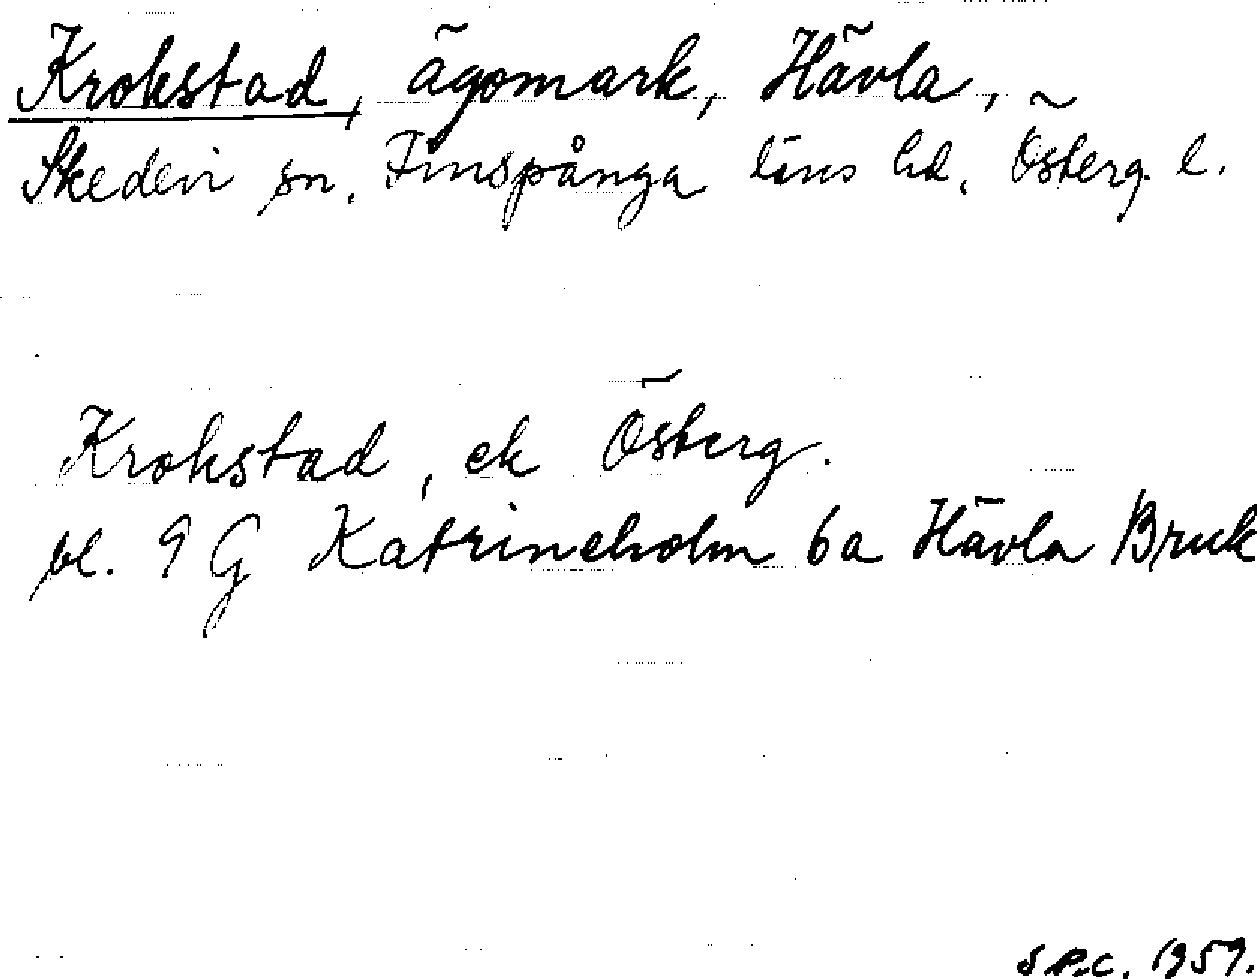 Krokstad, ägomark, Hävla,
Skedevi sn. Finspånga läns hd. Österg. l.
Krokstad, ek Österg.
bl. 9 G Katrineholm 6a Hävla Bruk
S P.C. 1959.